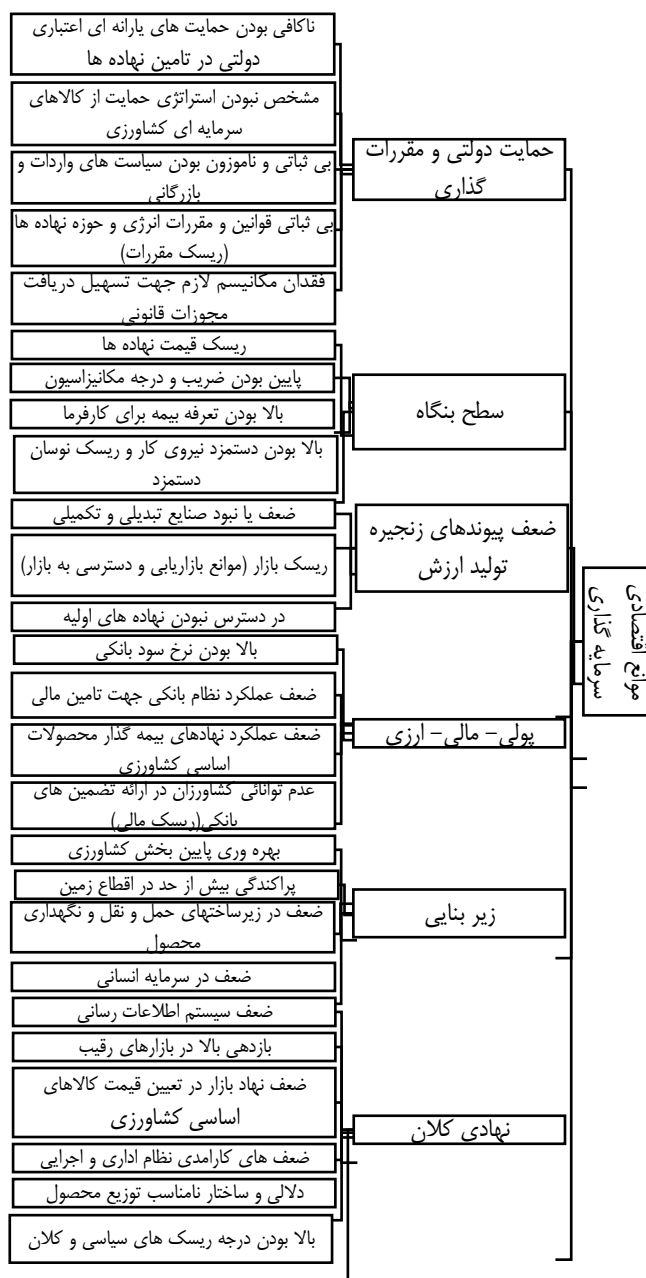 موانع اقتصادی
سرمایه گذاری
حمایت دولتی و مقررات
گذاری
ناکافی بودن حمایت های یارانه ای اعتباری
دولتی در تامین نهاده ها
مشخص نبودن استراتژی حمایت از کالاهای
سرمایه ای کشاورزی
بی ثباتی و ناموزون بودن سیاست های واردات و
بازرگانی
بی ثباتی قوانین و مقررات انرژی و حوزه نهاده ها
(ریسک مقررات)
فقدان مکانیسم لازم جهت تسهیل دریافت
مجوزات قانونی
سطح بنگاه
ریسک قیمت نهاده ها
پایین بودن ضریب و درجه مکانیزاسیون
بالا بودن تعرفه بیمه برای کارفرما
بالا بودن دستمزد نیروی کار و ریسک نوسان
دستمزد
ضعف پیوندهای زنجیره
تولید ارزش
ضعف یا نبود صنایع تبدیلی و تکمیلی
ریسک بازار (موانع بازاریابی و دسترسی به بازار)
در دسترس نبودن نهاده های اولیه
پولی- مالی- ارزی
بالا بودن نرخ سود بانکی
ضعف عملکرد نظام بانکی جهت تامین مالی
ضعف عملکرد نهادهای بیمه گذار محصولات
اساسی کشاورزی
عدم توانائی کشاورزان در ارائه تضمین های
بانکی(ریسک مالی)
زیر بنایی
بهره وری پایین بخش کشاورزی
پراکندگی بیش از حد در اقطاع زمین
ضعف در زیرساختهای حمل و نقل و نگهداری
محصول
ضعف در سرمایه انسانی
نهادی کلان
ضعف سیستم اطلاعات رسانی
بازدهی بالا در بازارهای رقیب
ضعف نهاد بازار در تعیین قیمت کالاهای
اساسی کشاورزی
ضعف های کارامدی نظام اداری و اجرایی
دلالی و ساختار نامناسب توزیع محصول
بالا بودن درجه ریسک های سیاسی و کلان